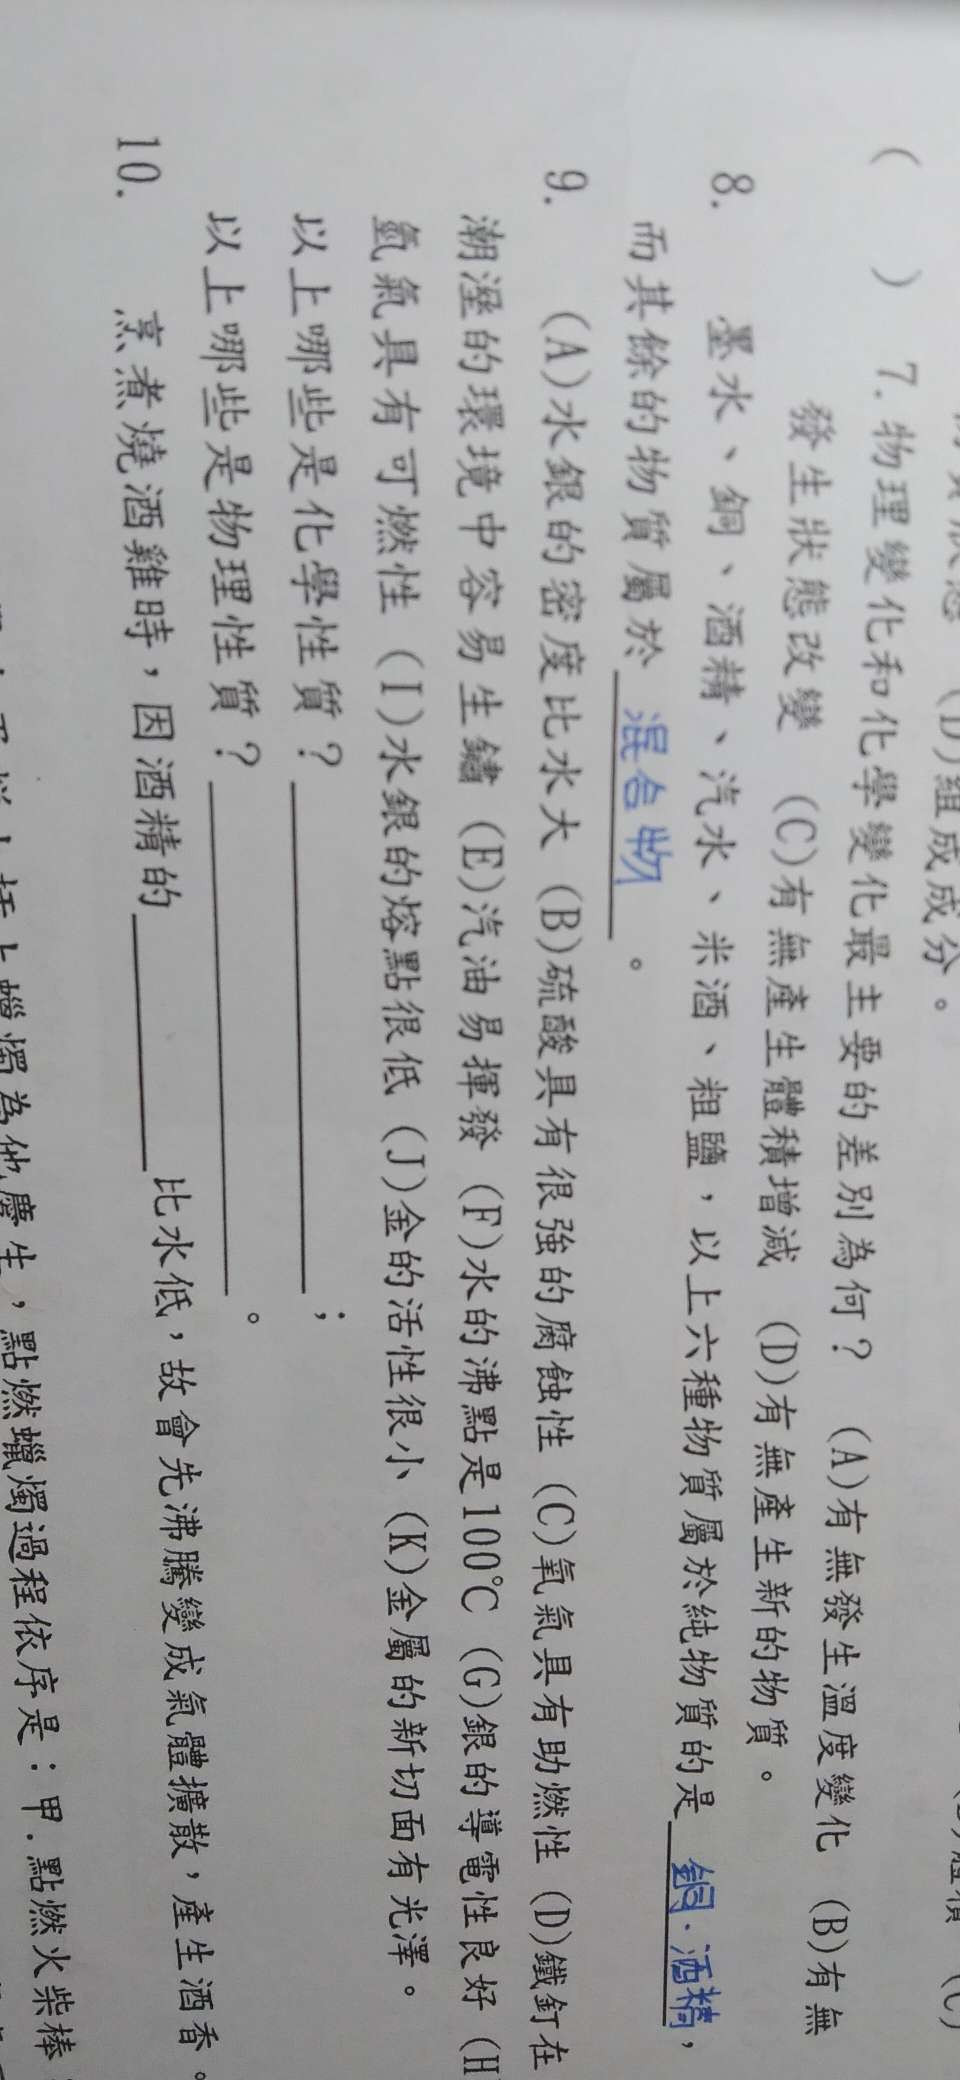 (D)組成成分。
( ) 7. 物理變化和化學變化最主要的差別為何？ (A)有無發生溫度變化 (B)有無
發生狀態改變 (C)有無產生體積增減 (D)有無產生新的物質。
8. 墨水、銅、酒精、汽水、米酒、粗鹽，以上六種物質屬於純物質的是 銅.酒精，
而其餘的物質屬於 混合物 。
9. (A)水銀的密度比水大 (B)硫酸具有很強的腐蝕性 (C)氧氣具有助燃性 (D)鐵釘在
潮溼的環境中容易生鏽 (E)汽油易揮發 (F)水的沸點是100℃ (G)銀的導電性良好 (H
氫氣具有可燃性 (I)水銀的熔點很低 (J)金的活性很小 (K)金屬的新切面有光澤。
以上哪些是化學性質？ ；
以上哪些是物理性質？ 。
10. 烹煮燒酒雞時，因酒精的 比水低，故會先沸騰變成氣體擴散，產生酒香。
上蠟燭為他慶生，點燃蠟燭過程依序是：甲.點燃火柴棒